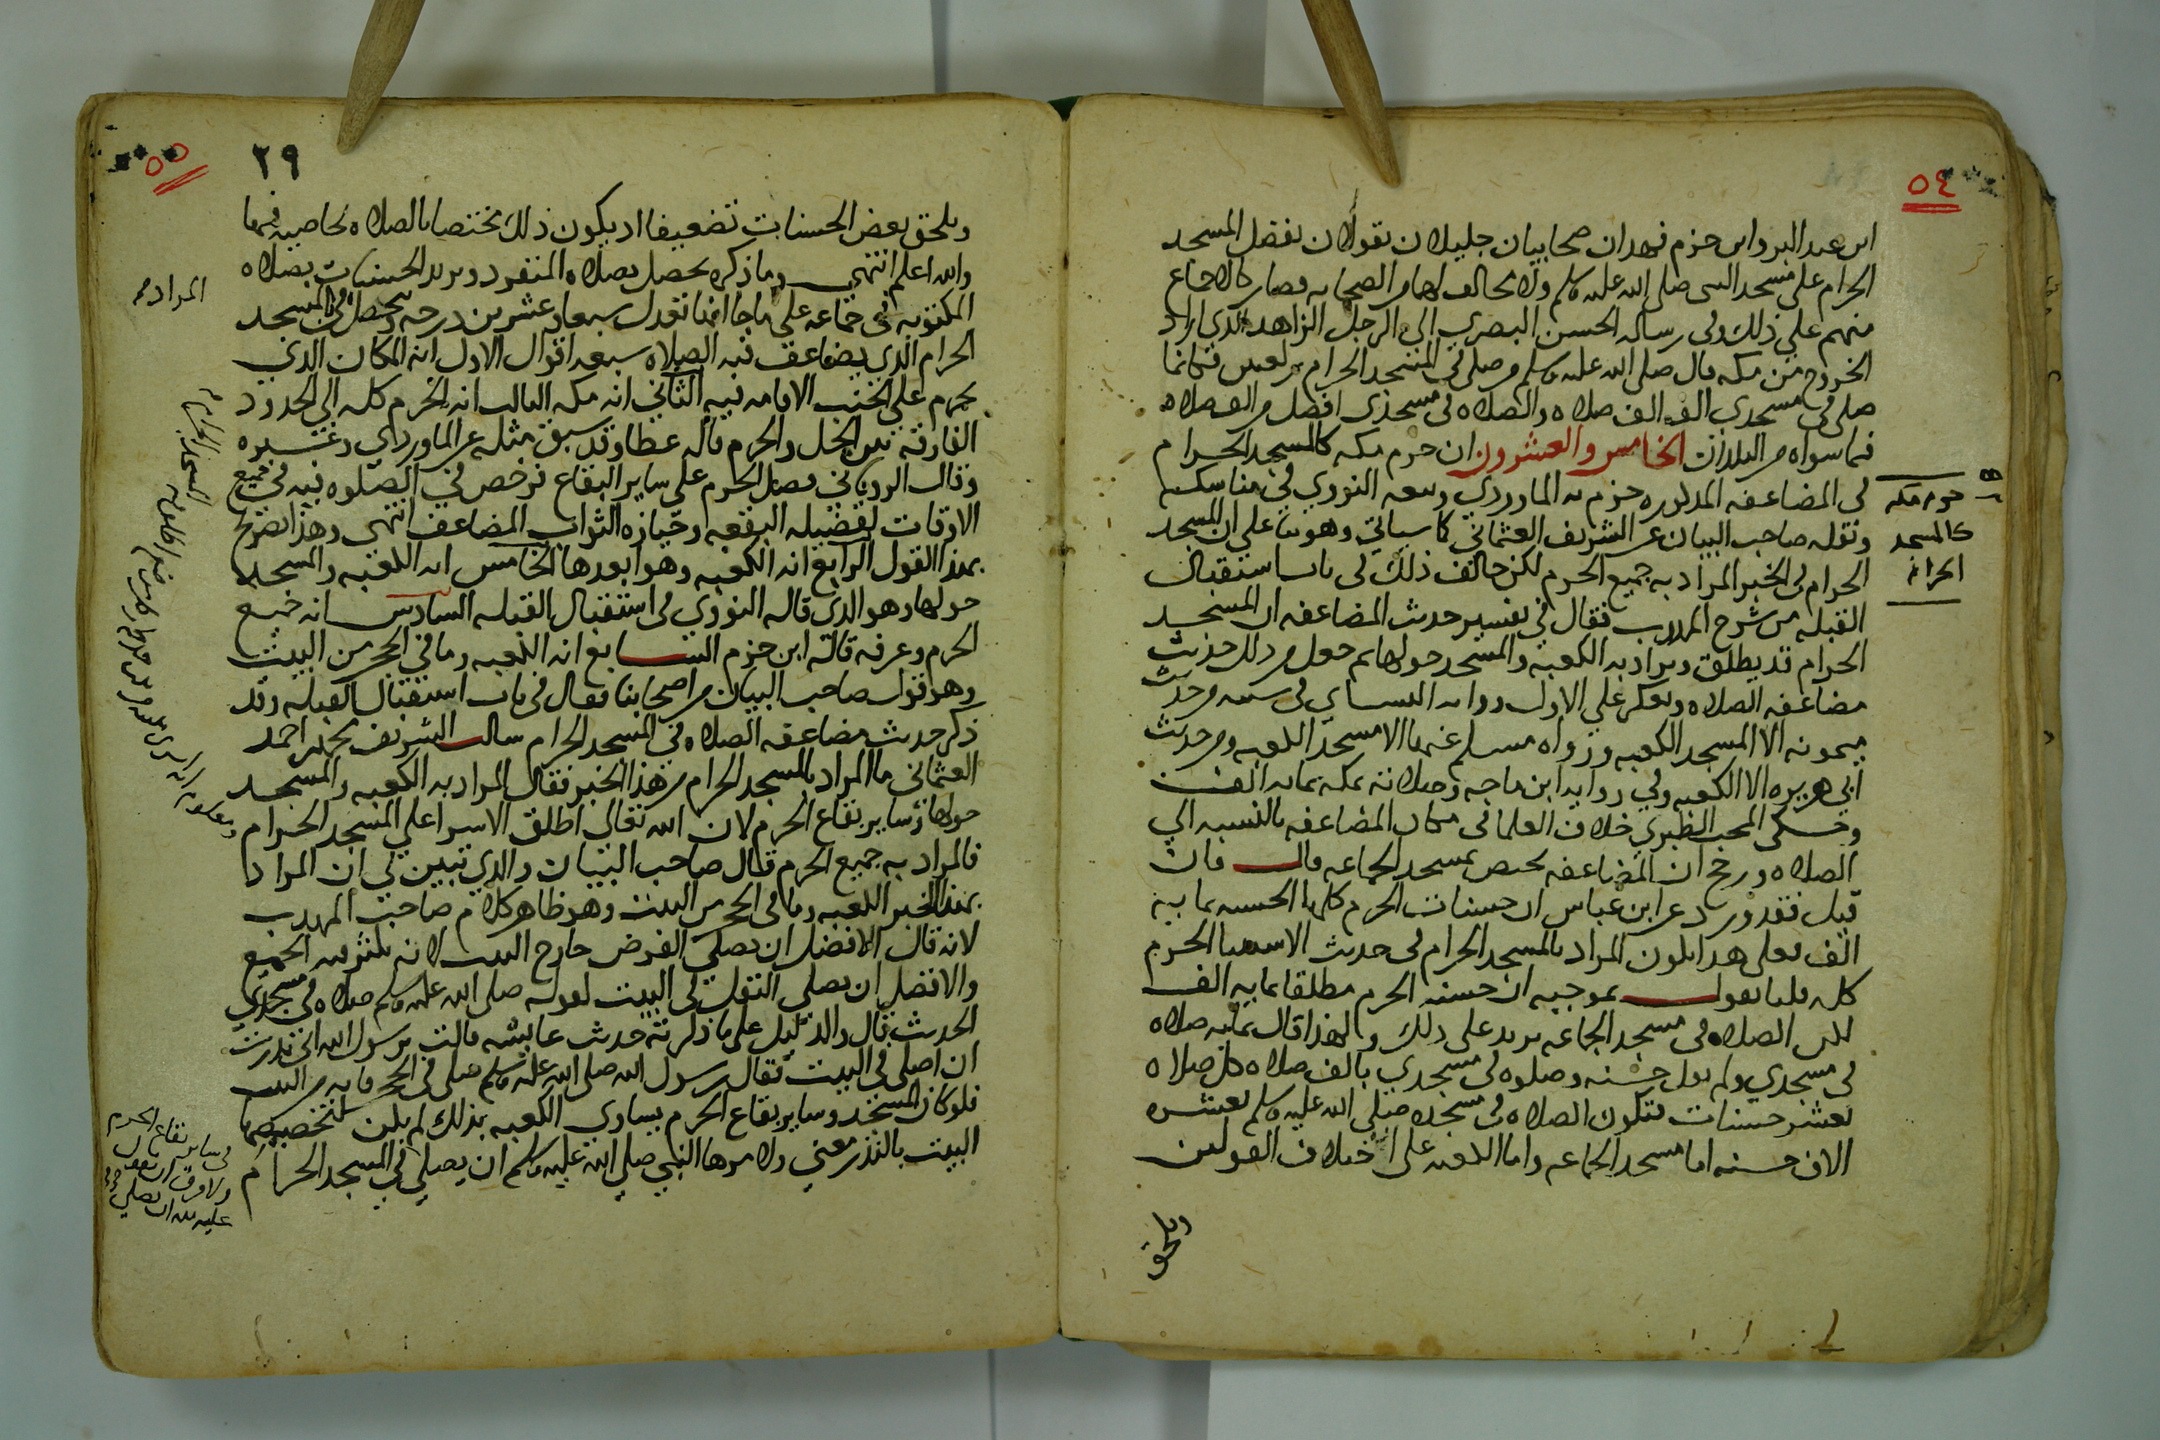 ٥٤
ابن عبد البر وابن حزم فهذان صحابيان جليلان يقولان بفضل المسجد
الحرام على مسجد النبي صلى الله عليه وسلم ولا مخالف لهما من الصحابه فصار كالاجماع
منهم على ذلك وفي رسالة الحسن البصري الى الرجل الزاهد الذي اراد
الخروج من مكه قال صلى الله عليه وسلم من صلى في المسجد الحرام ركعتين فكانما
صلى في مسجدي الف الف صلاه والصلاه في مسجدي افضل من الف صلاه
فيما سواه من البلدان الخامس والعشرون ان حرم مكه كالمسجد الحرام
في المضاعفه المذكوره جزم به الماوردي وتبعه النووي في مناسكه
ونقله صاحب البيان عن الشريف العثماني كما سياتي وهو بنا على ان المسجد
الحرام في الخبر المراد به جميع الحرم لكن خالف ذلك في باب استقبال
القبله من شرح المهذب فقال في تفسير حديث المضاعفه ان المسجد
الحرام قد يطلق ويراد به الكعبه والمسجد حولها ثم جعل من ذلك حديث
مضاعفه الصلاه ويعكر على الاول رواية النسائي في سننه من حديث
ميمونه الا المسجد الكعبه ورواه مسلم عنها الا مسجد الكعبه ومن حديث
ابي هريره الا الكعبه وفي رواية ابن ماجه وصلاته بمكه بمايه الف
وحكى المحب الطبري خلاف العلما في مكان المضاعفه بالنسبه الى
الصلاه ورجح ان المضاعفه تختص بمسجد الجماعه قال فان
قيل فقد ورد عن ابن عباس ان حسنات الحرم كلها الحسنه بمايه
الف فعلى هذا يكون المراد بالمسجد الحرام في حديث الاستثنا الحرم
كله قلنا نقول بموجبه ان حسنه الحرم مطلقا بمايه الف
لكن الصلاه في مسجد الجماعه يزيد على ذلك ولهذا قال بمايه صلاه
في مسجدي ولم يقل حسنه وصلوه في مسجدي بالف صلاه كل صلاه
بعشر حسنات فتكون الصلاه في مسجده صلى الله عليه وسلم بعشره
الاف حسنه اما مسجد الجماعه واما الكعبه على اختلاف القولين
ويلحق
حرم مكه
كالمسجد
الحرام
٥٥
٢٩
ويلحق بعض الحسنات تضعيفا او يكون ذلك مختصا بالصلاه لخاصيه فيها
والله اعلم انتهى وما ذكره يحصل بصلاه المنفرد ويزيد الحسنات بصلاه
المكتوبه في جماعه على ما جا انها تعدل سبعا وعشرين درجه ويحصل في المسجد
الحرام الذي يضاعف فيه الصلاه سبعه اقوال الاول انه المكان الذي
يحرم على الجنب الاقامه فيه الثاني انه مكه الثالث انه الحرم كله الى الحدود
الفارقه بين الحل والحرم قاله عطا وقد سبق مثله عن الماوردي وغيره
وقال الروياني فضل الحرم على ساير البقاع فرخص في الصلوه فيه في جميع
الاوقات لفضيله البقعه وحيازه الثواب المضاعف انتهى وهذا تصريح
بهذا القول الرابع انه الكعبه وهو ابعدها الخامس انه الكعبه والمسجد
حولها وهو الذي قاله النووي في استقبال القبله السادس انه جميع
الحرم وعرفه قاله ابن حزم السابع انه الكعبه وما في الحجر من البيت
وهو قول صاحب البيان من اصحابنا فقال في باب استقبال القبله وقد
ذكر حديث مضاعفه الصلاه في المسجد الحرام سالت الشريف محمد بن احمد
العثماني ما المراد بالمسجد الحرام في هذا الخبر فقال المراد به الكعبه والمسجد
حولها وساير بقاع الحرم لان الله تعالى اطلق الاسرا على المسجد الحرام
فالمراد به جميع الحرم قال صاحب البيان والذي تبين لي ان المراد
بهذا الخبر الكعبه وما في الحجر من البيت وهو ظاهر كلام صاحب المهذب
لانه قال الافضل ان يصلي الفرض خارج البيت لانه يكثر فيه الجمع
والافضل ان يصلي النفل في البيت لقوله صلى الله عليه وسلم صلاه في مسجدي
الحديث قال والدليل على ما ذكرته حديث عايشه قالت يرسول الله اني نذرت
ان اصلي في البيت فقال رسول الله صلى الله عليه وسلم صلي في الحجر فانه من البيت
فلو كان المسجد وساير بقاع الحرم يساوي الكعبه بذلك لم يكن لتخصيصها
البيت بالنذر معنى ولامرها النبي صلى الله عليه وسلم ان يصلي في المسجد الحرام
المراد
في ساير بقاع الحرم